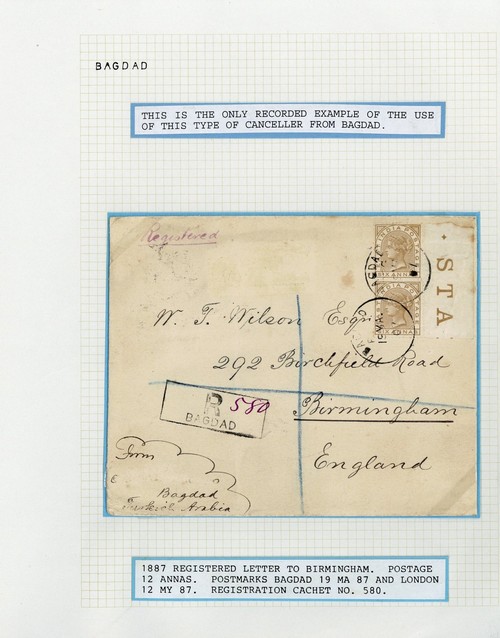 BAGDAD
THIS IS THE ONLY RECORDED EXAMPLE OF THE USE
OF THIS TYPE OF CANCELLER FROM BAGDAD.
Registered
STA
SIX ANNAS
W. T. Wilson Esqr
292 Birchfield Road
Birmingham
England
R 580
BAGDAD
From
Bagdad
Turkish Arabia
1887 REGISTERED LETTER TO BIRMINGHAM. POSTAGE
12 ANNAS. POSTMARKS BAGDAD 19 MA 87 AND LONDON
12 MY 87. REGISTRATION CACHET NO. 580.